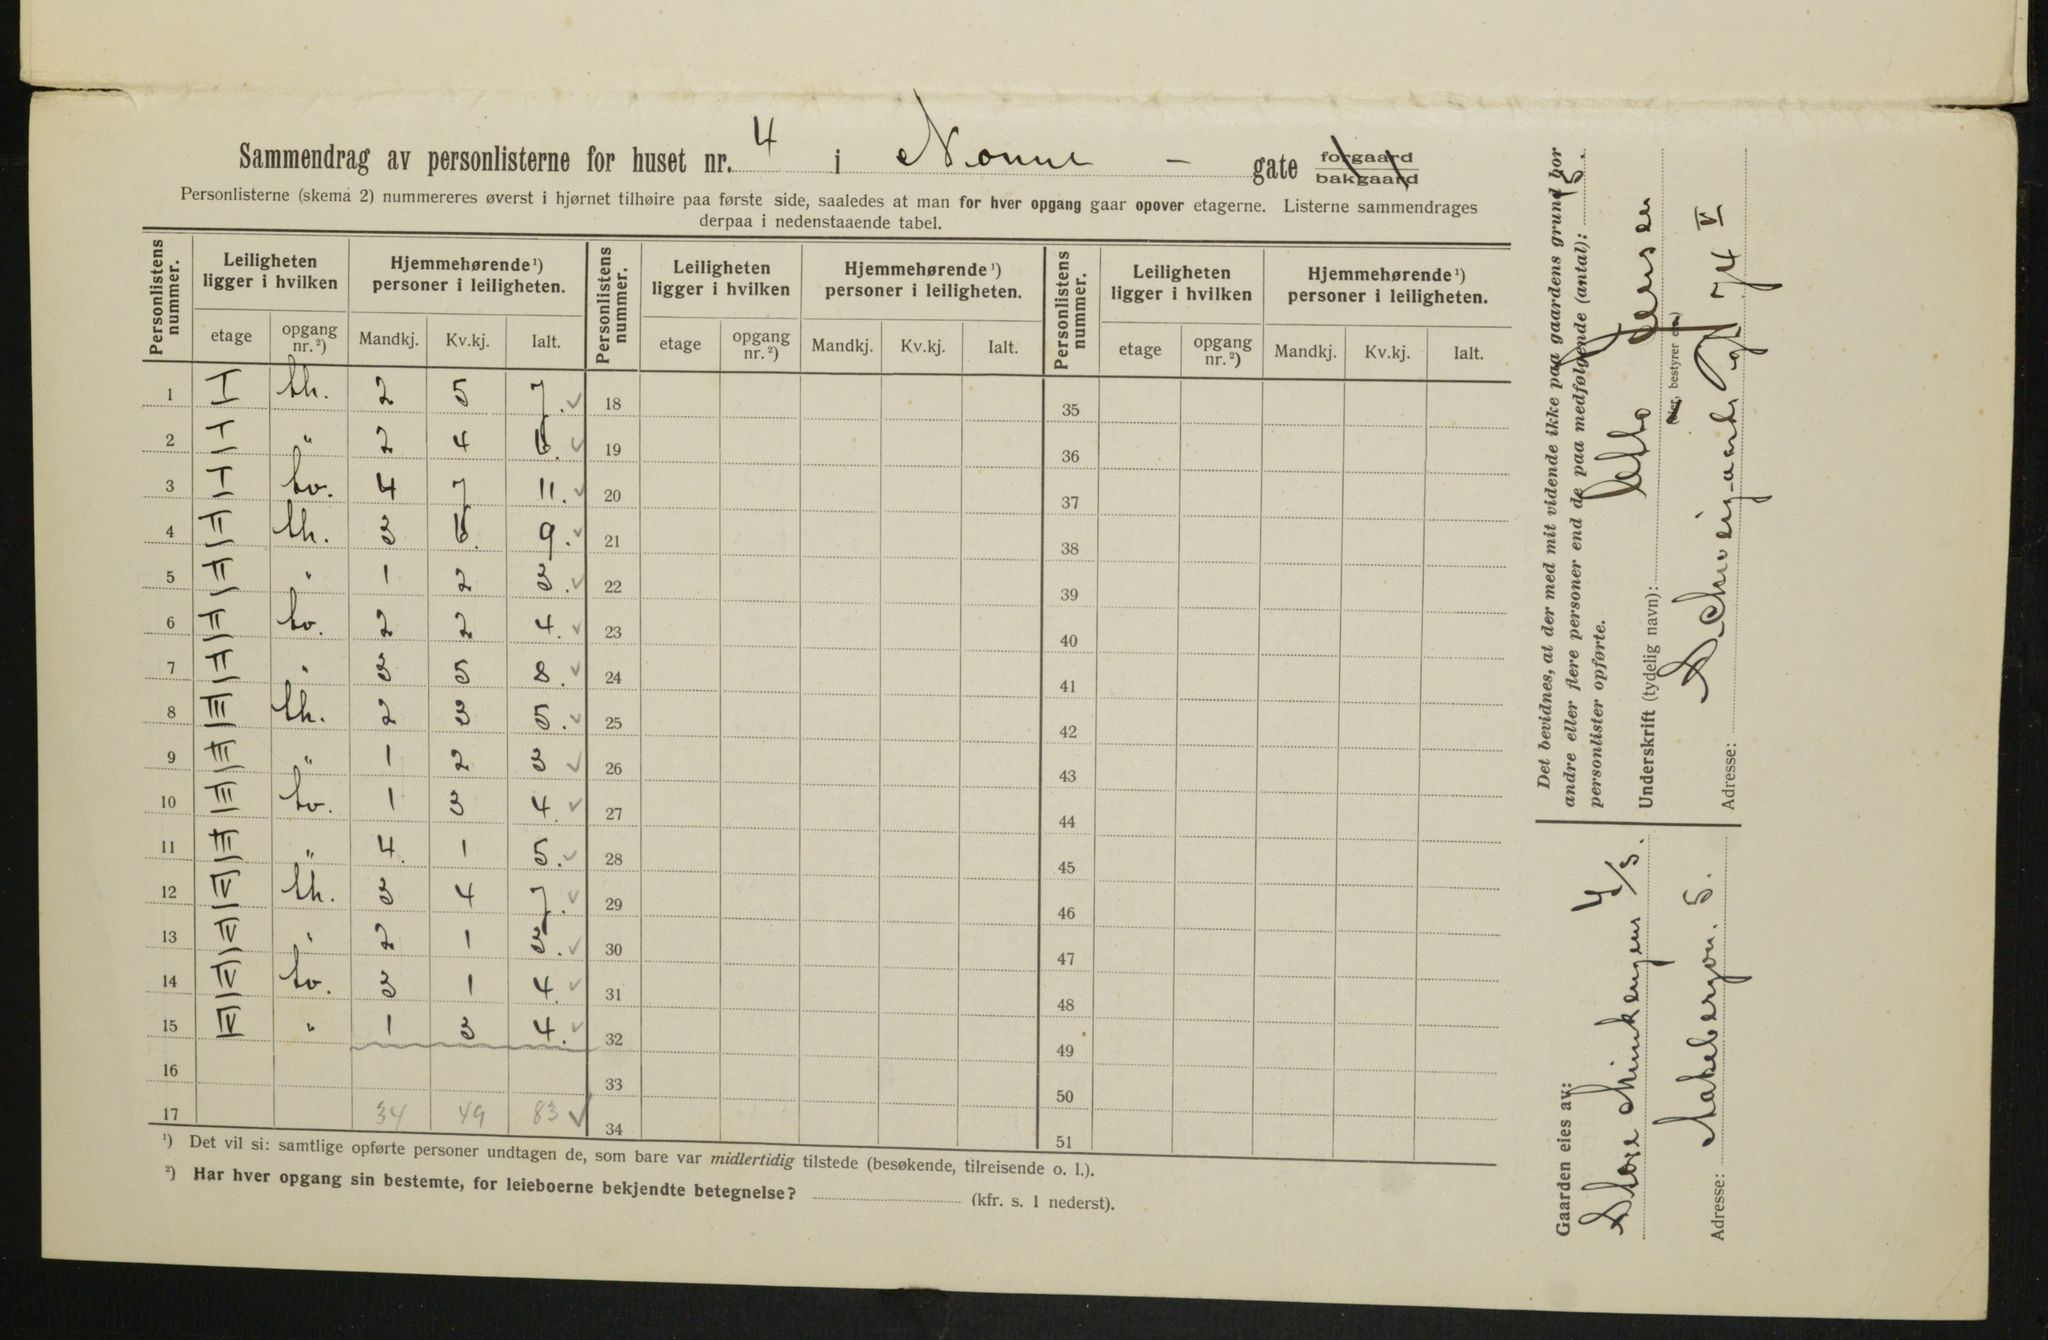 Sammendrag av personlisterne for huset nr. 4 i Nonne - gate forgaard bakgaard
Personlisterne (skema 2) nummereres øverst i hjørnet tilhøire paa første side, saaledes at man for hver opgang gaar opover etagerne. Listerne sammendrages
derpaa i nedenstaaende tabel.
Personlistens nummer. Leiligheten ligger i hvilken Hjemmehørende¹) personer i leiligheten. Personlistens nummer. Leiligheten ligger i hvilken Hjemmehørende¹) personer i leiligheten. Personlistens nummer. Leiligheten ligger i hvilken Hjemmehørende¹) personer i leiligheten.
etage opgang nr.²) Mandkj. Kv.kj. Ialt. etage opgang nr.²) Mandkj. Kv.kj. Ialt. etage opgang nr.²) Mandkj. Kv.kj. Ialt.
1 I th. 2 5 7. ✓ 18 35
2 I " 2 4 6. ✓ 19 36
3 I tv. 4 7 11. ✓ 20 37
4 II th. 3 6. 9. ✓ 21 38
5 II " 1 2 3. ✓ 22 39
6 II tv. 2 2 4. ✓ 23 40
7 II " 3 5 8. ✓ 24 41
8 III th. 2 3 5. ✓ 25 42
9 III " 1 2 3 ✓ 26 43
10 III tv. 1 3 4. ✓ 27 44
11 III " 4. 1 5. ✓ 28 45
12 IV th. 3 4 7. ✓ 29 46
13 IV " 2 1 3. ✓ 30 47
14 IV tv. 3 1 4. ✓ 31 48
15 IV " 1 3 4. ✓ 32 49
16 33 50
17 34 49 83 ✓ 34 51
¹) Det vil si: samtlige opførte personer undtagen de, som bare var midlertidig tilstede (besøkende, tilreisende o. l.).
²) Har hver opgang sin bestemte, for leieboerne bekjendte betegnelse? (kfr. s. 1 nederst).
Det bevidnes, at der med mit vidende ikke paa gaardens grund bor
andre eller flere personer end de paa medfølgende (antal): 15.
personlister opførte.
Underskrift (tydelig navn): Jensen
(eier, bestyrer etc.)
Adresse: Schweigaards gt 74 V
Gaarden eies av:
4/5.
Adresse: Aakebergvn. 5.